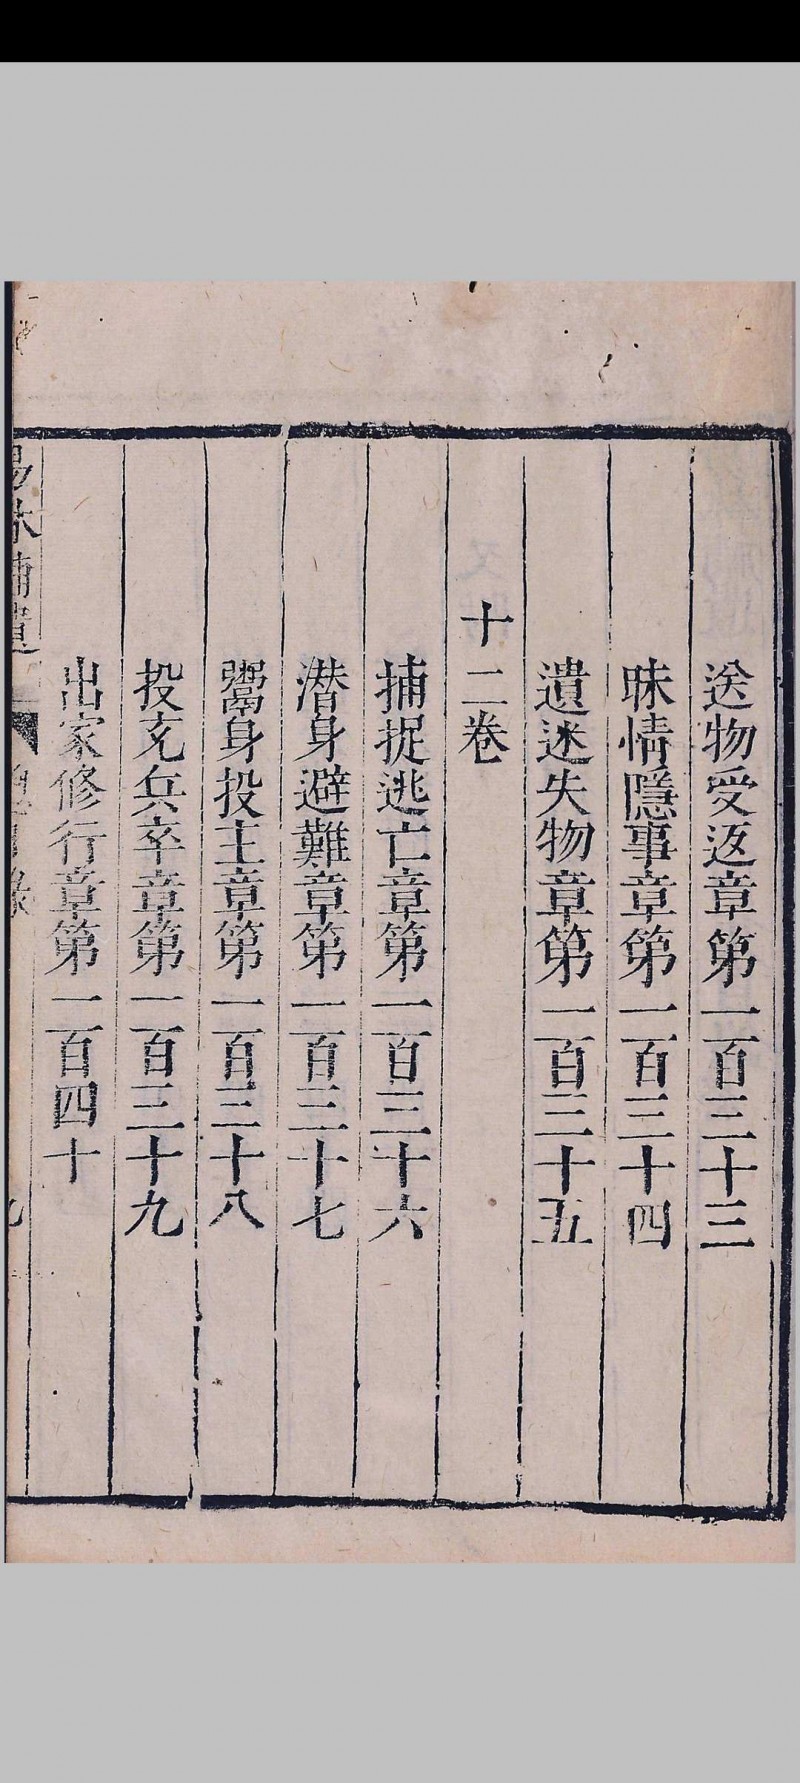 送物受返章第一百三十三
昧情隱事章第一百三十四
遺迷失物章第一百三十五
十二卷
捕捉逃亡章第一百三十六
潛身避難章第一百三十七
鬻身投主章第一百三十八
投充兵卒章第一百三十九
出家修行章第一百四十
易林補遺